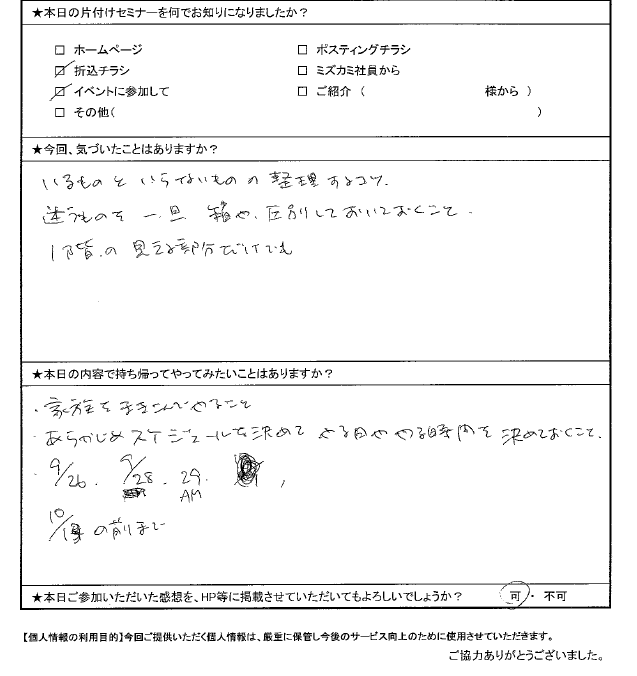 ★本日の片付けセミナーを何でお知りになりましたか？
□ ホームページ □ ポスティングチラシ
☑ 折込チラシ □ ミズカミ社員から
☑ イベントに参加して □ ご紹介（ 様から ）
□ その他（ ）
★今回、気づいたことはありますか？
いるものと いらないものの 整理するコツ.
迷うものを 一旦 箱や、区別しておいておくこと.
1階.の 見える部分だけでも
★本日の内容で持ち帰ってやってみたいことはありますか？
・家族をまきこんでやること
・あらかじめスケジュールを決めて やる日ややる時間を 決めておくこと.
・9/26. 9/28. 29. AM
10/ の前まで
★本日ご参加いただいた感想を、HP等に掲載させていただいてもよろしいでしょうか？ 可・不可
【個人情報の利用目的】今回ご提供いただく個人情報は、厳重に保管し今後のサービス向上のために使用させていただきます。
ご協力ありがとうございました。